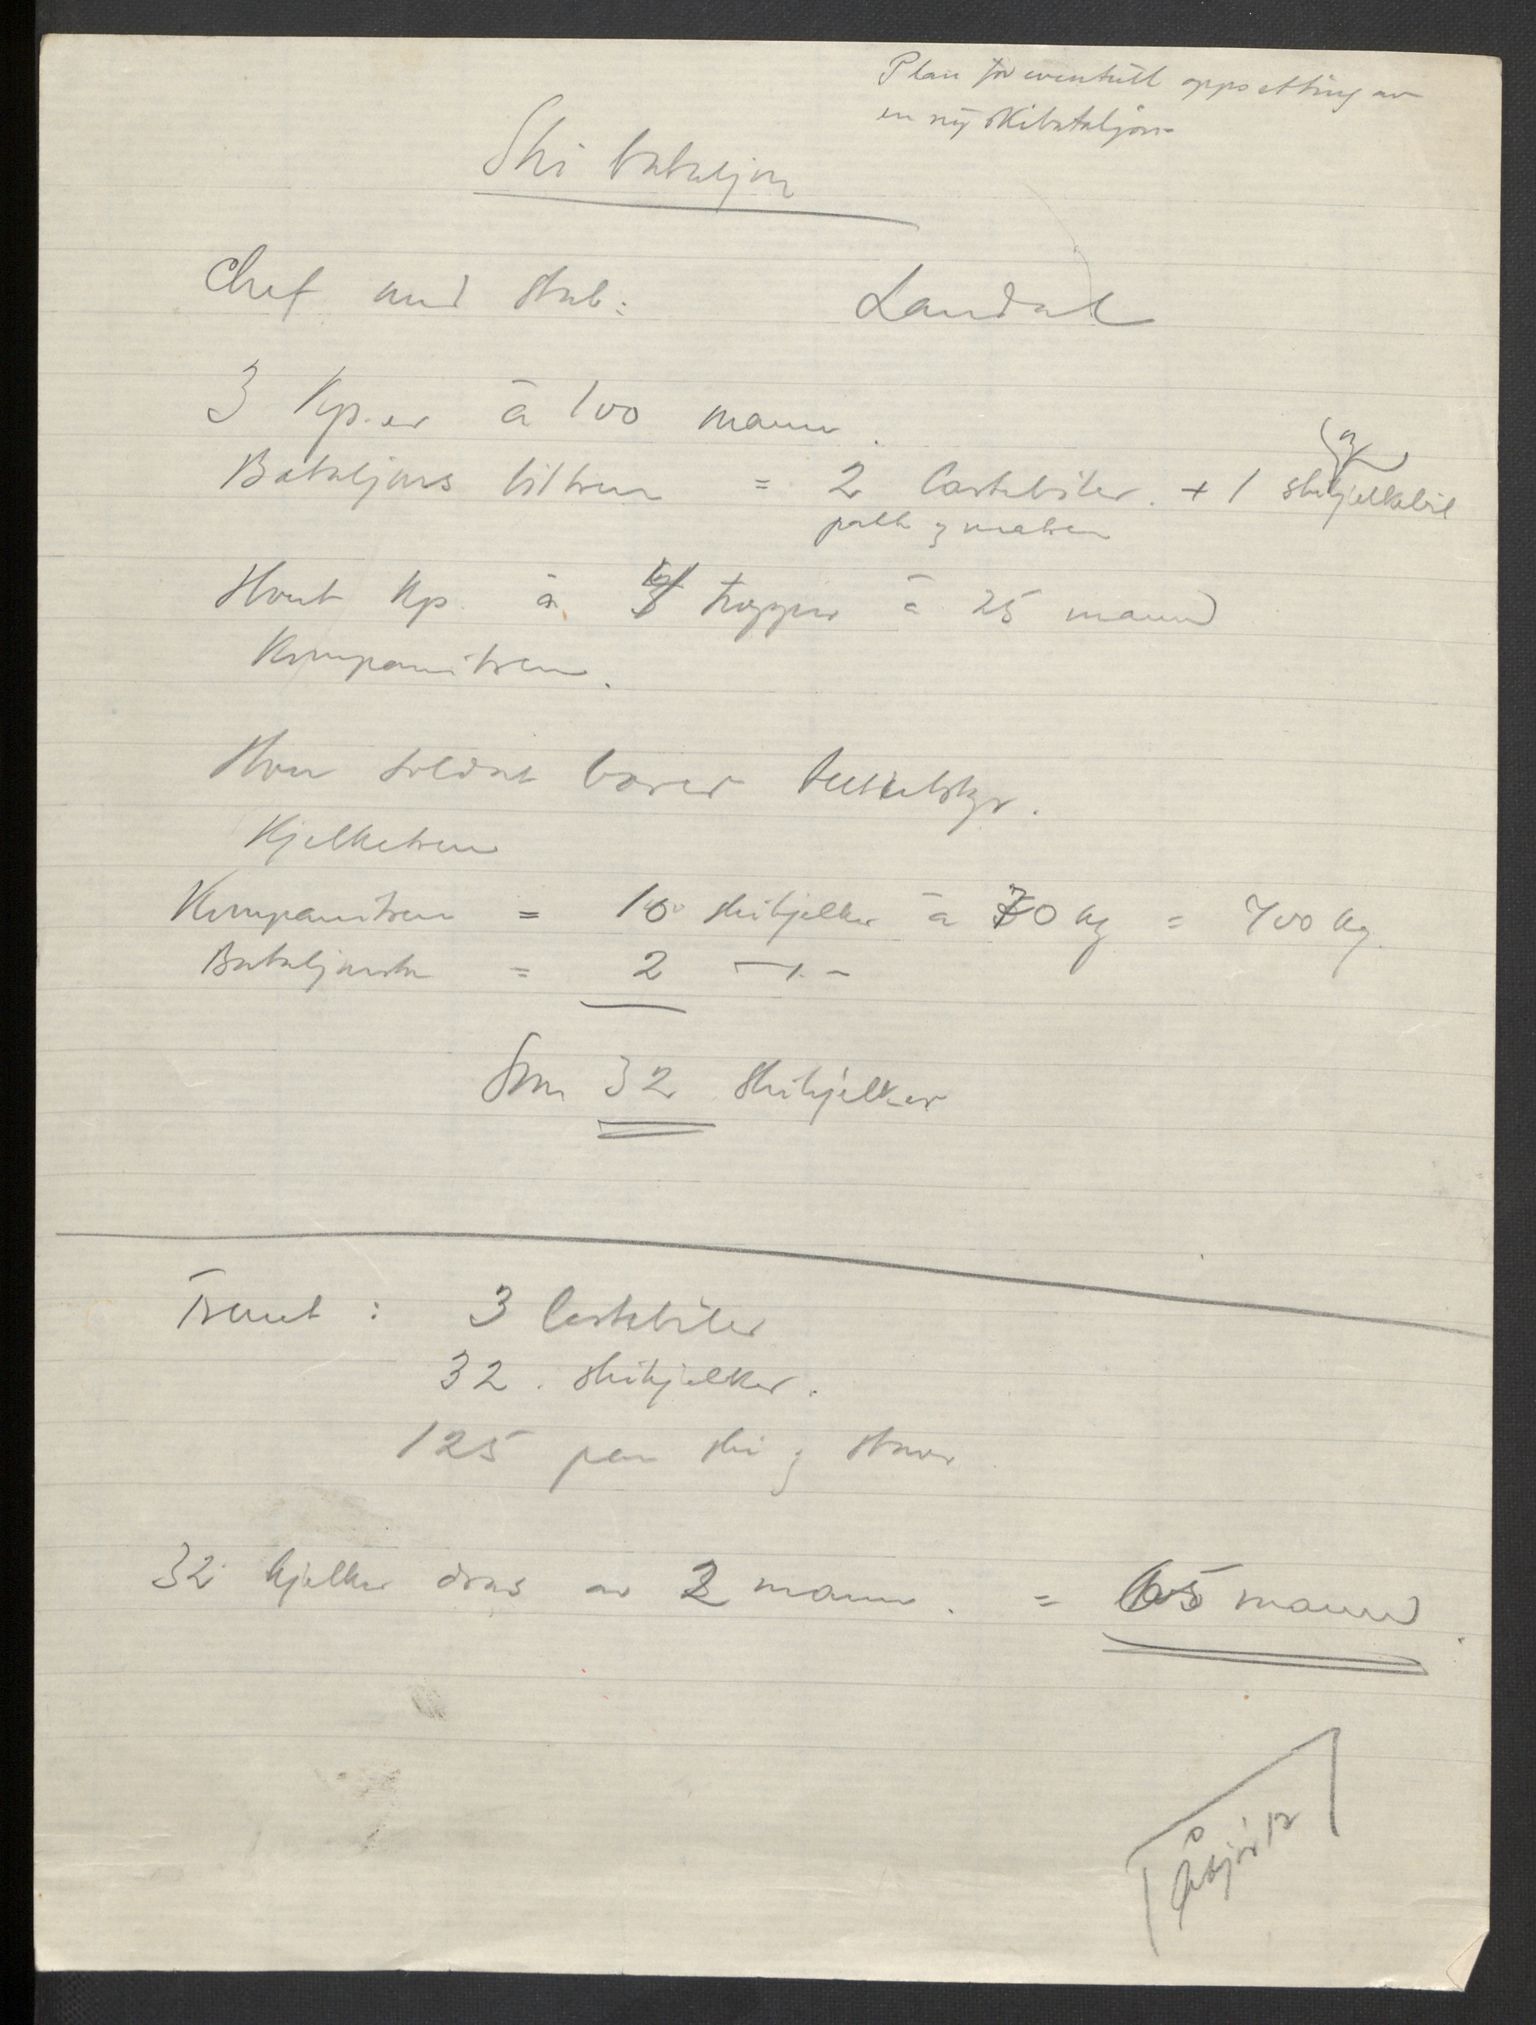 Plan for eventuell oppsetting av
en ny skibataljon
Ski bataljon
Chef med stab: Landal
3 Kp.er à 100 mann.
Bataljons biltren = 2 lastebiler. + 1 skikjelkebil
og maten
Hvert Kp. à tropper à 25 mann
Kompanitren.
Hver soldat bærer
Kjelketren
Kompanitren = 10 skikjelker à 70 kg = 700 kg.
Bataljonstr = 2 -"-
Sum 32 skikjelker
Trenet: 3 lastebiler
32. skikjelker.
125 par ski og staver
32 kjelker dras av 2 mann. = 65 mann.